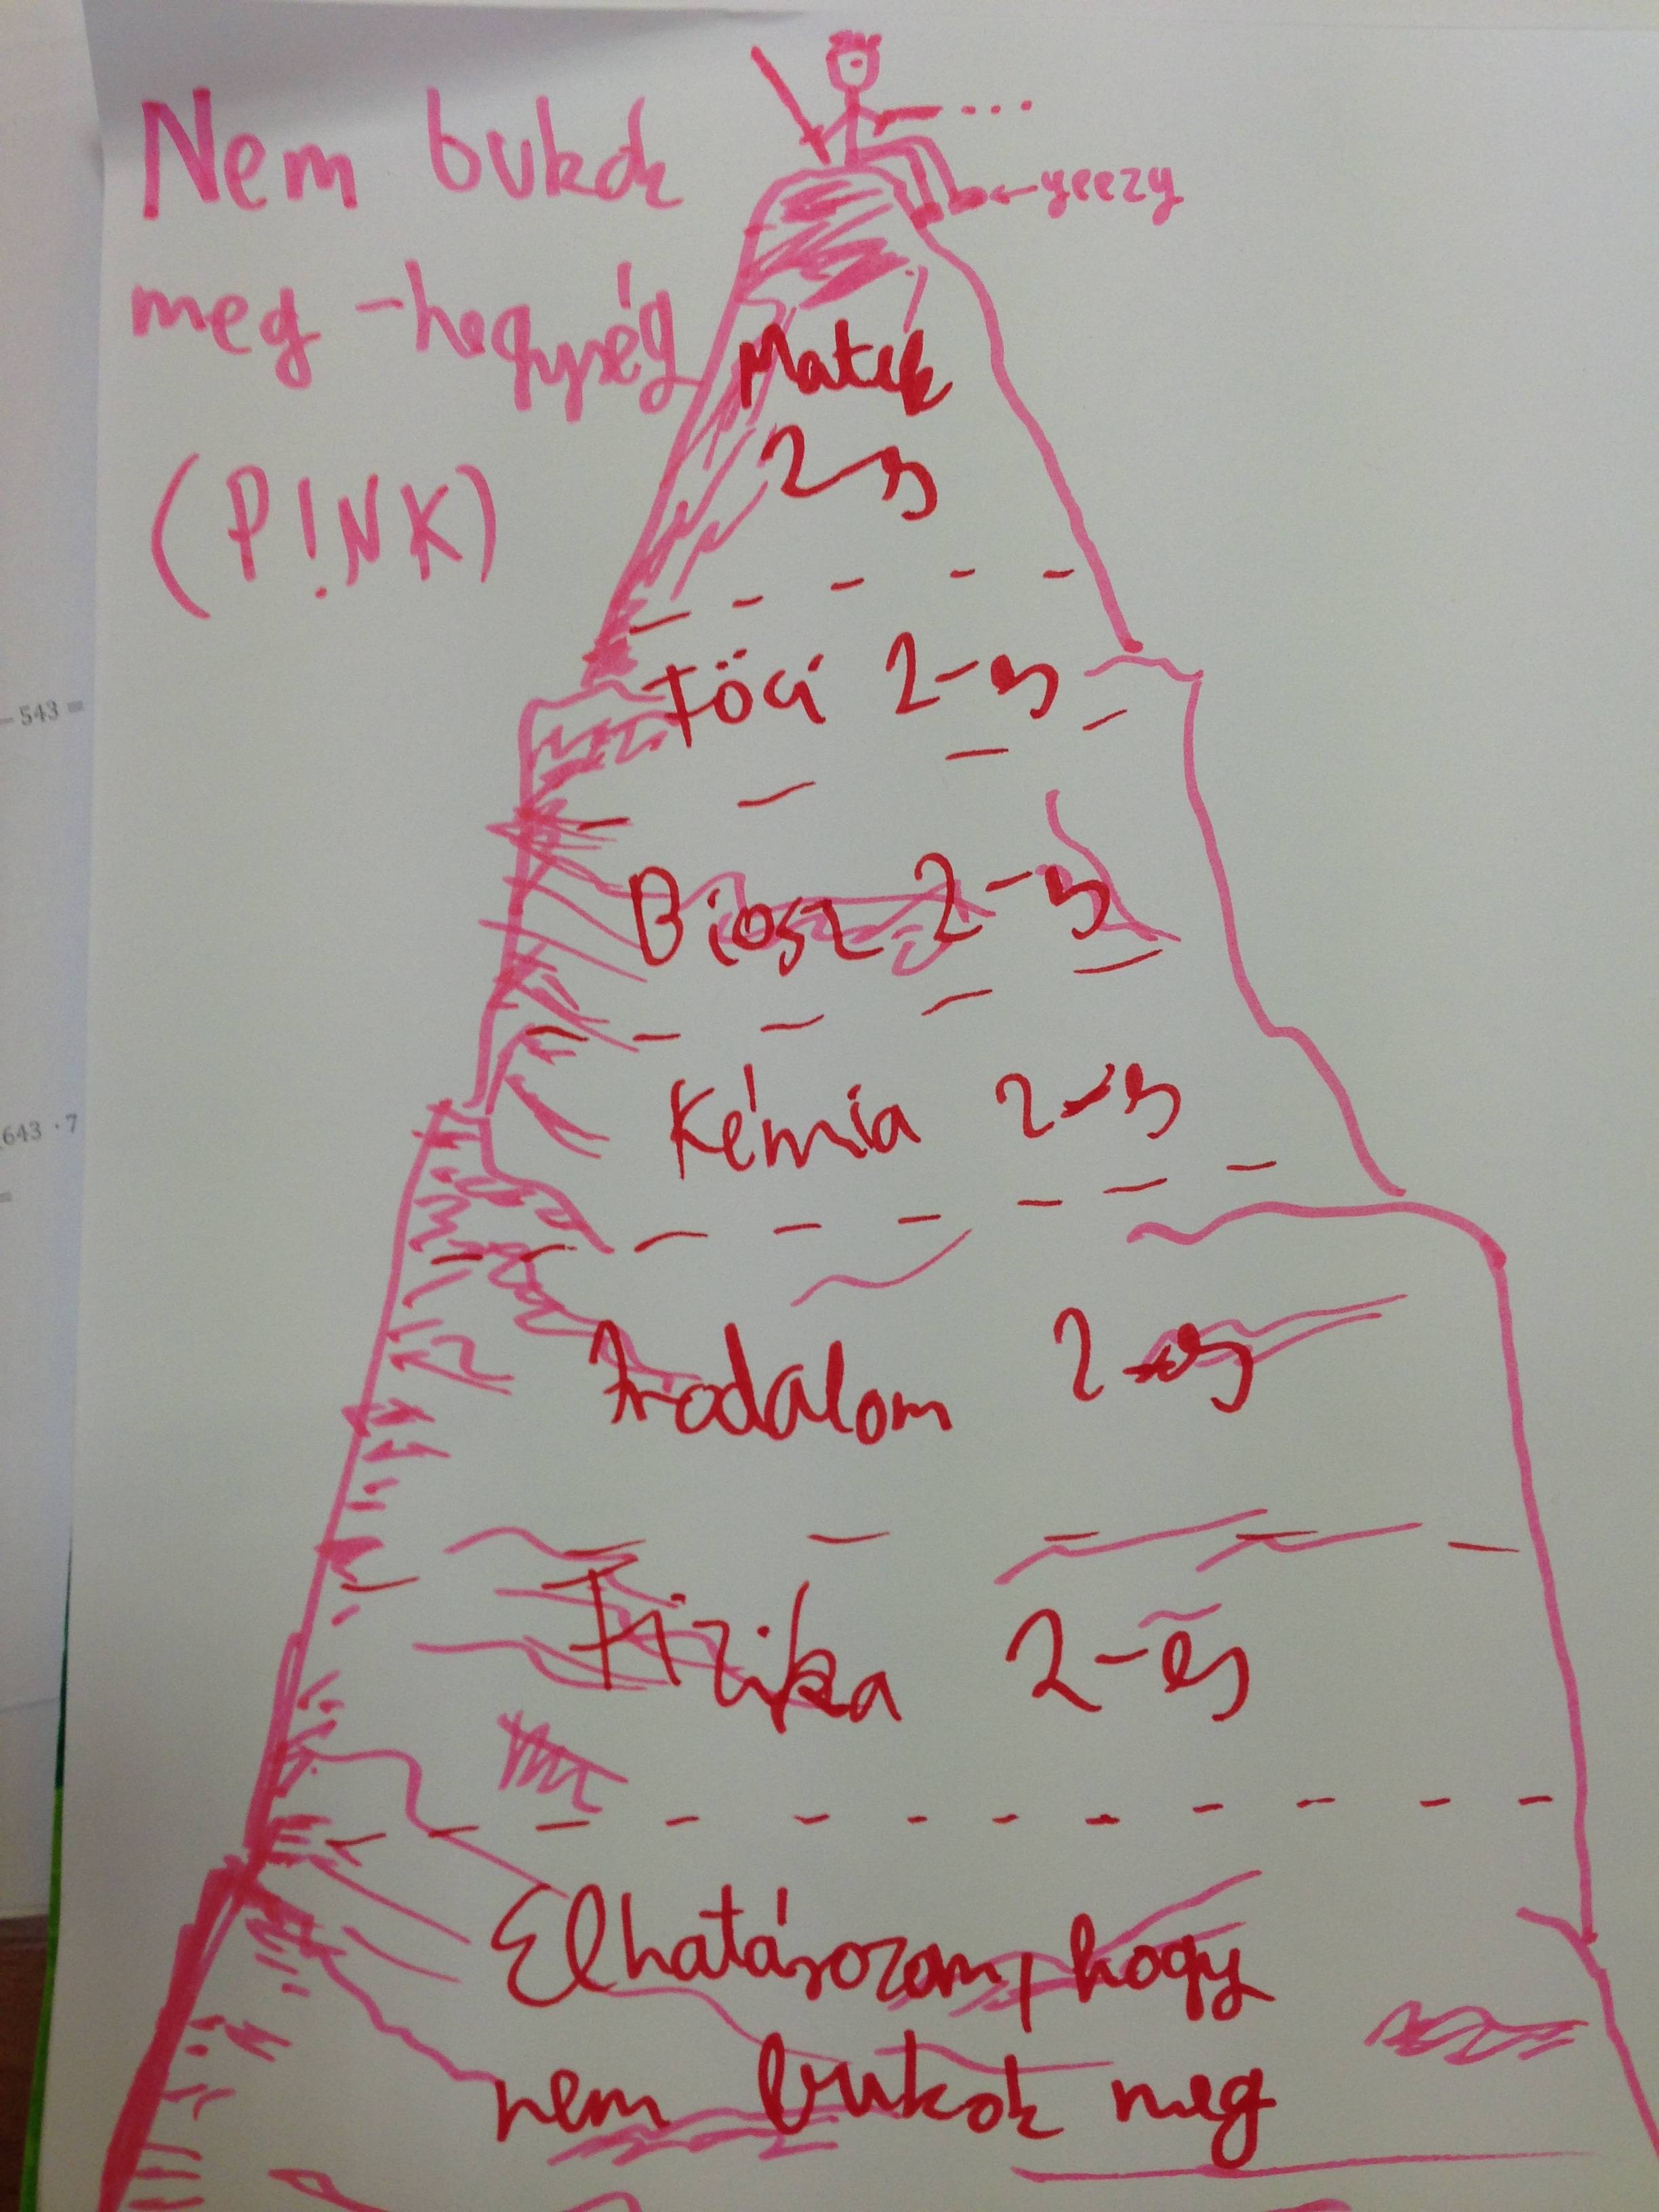 Nem bukok
meg - hegység
(P!NK)
←yeezy
Matek
2-s
Föci 2-es
Biosz 2-es
Kémia 2-es
Irodalom 2-es
Fizika 2-es
Elhatározom, hogy
nem bukok meg
- 543 =
643 · 7
=